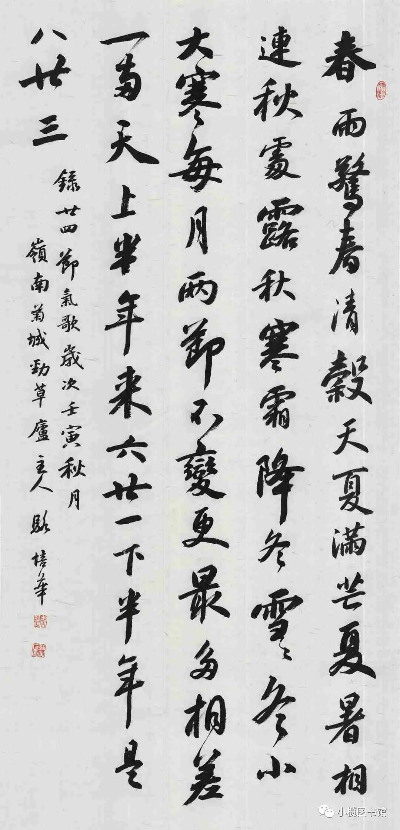 春雨驚春清穀天夏滿芒夏暑相
連秋處露秋寒霜降冬雪〻冬小
大寒每月兩節不變更最多相差
一兩天上半年来六廿一下半年是
八廿三
錄廿四節氣歌歲次壬寅秋月
嶺南菊城勁草廬主人駱培華
小榄图书馆